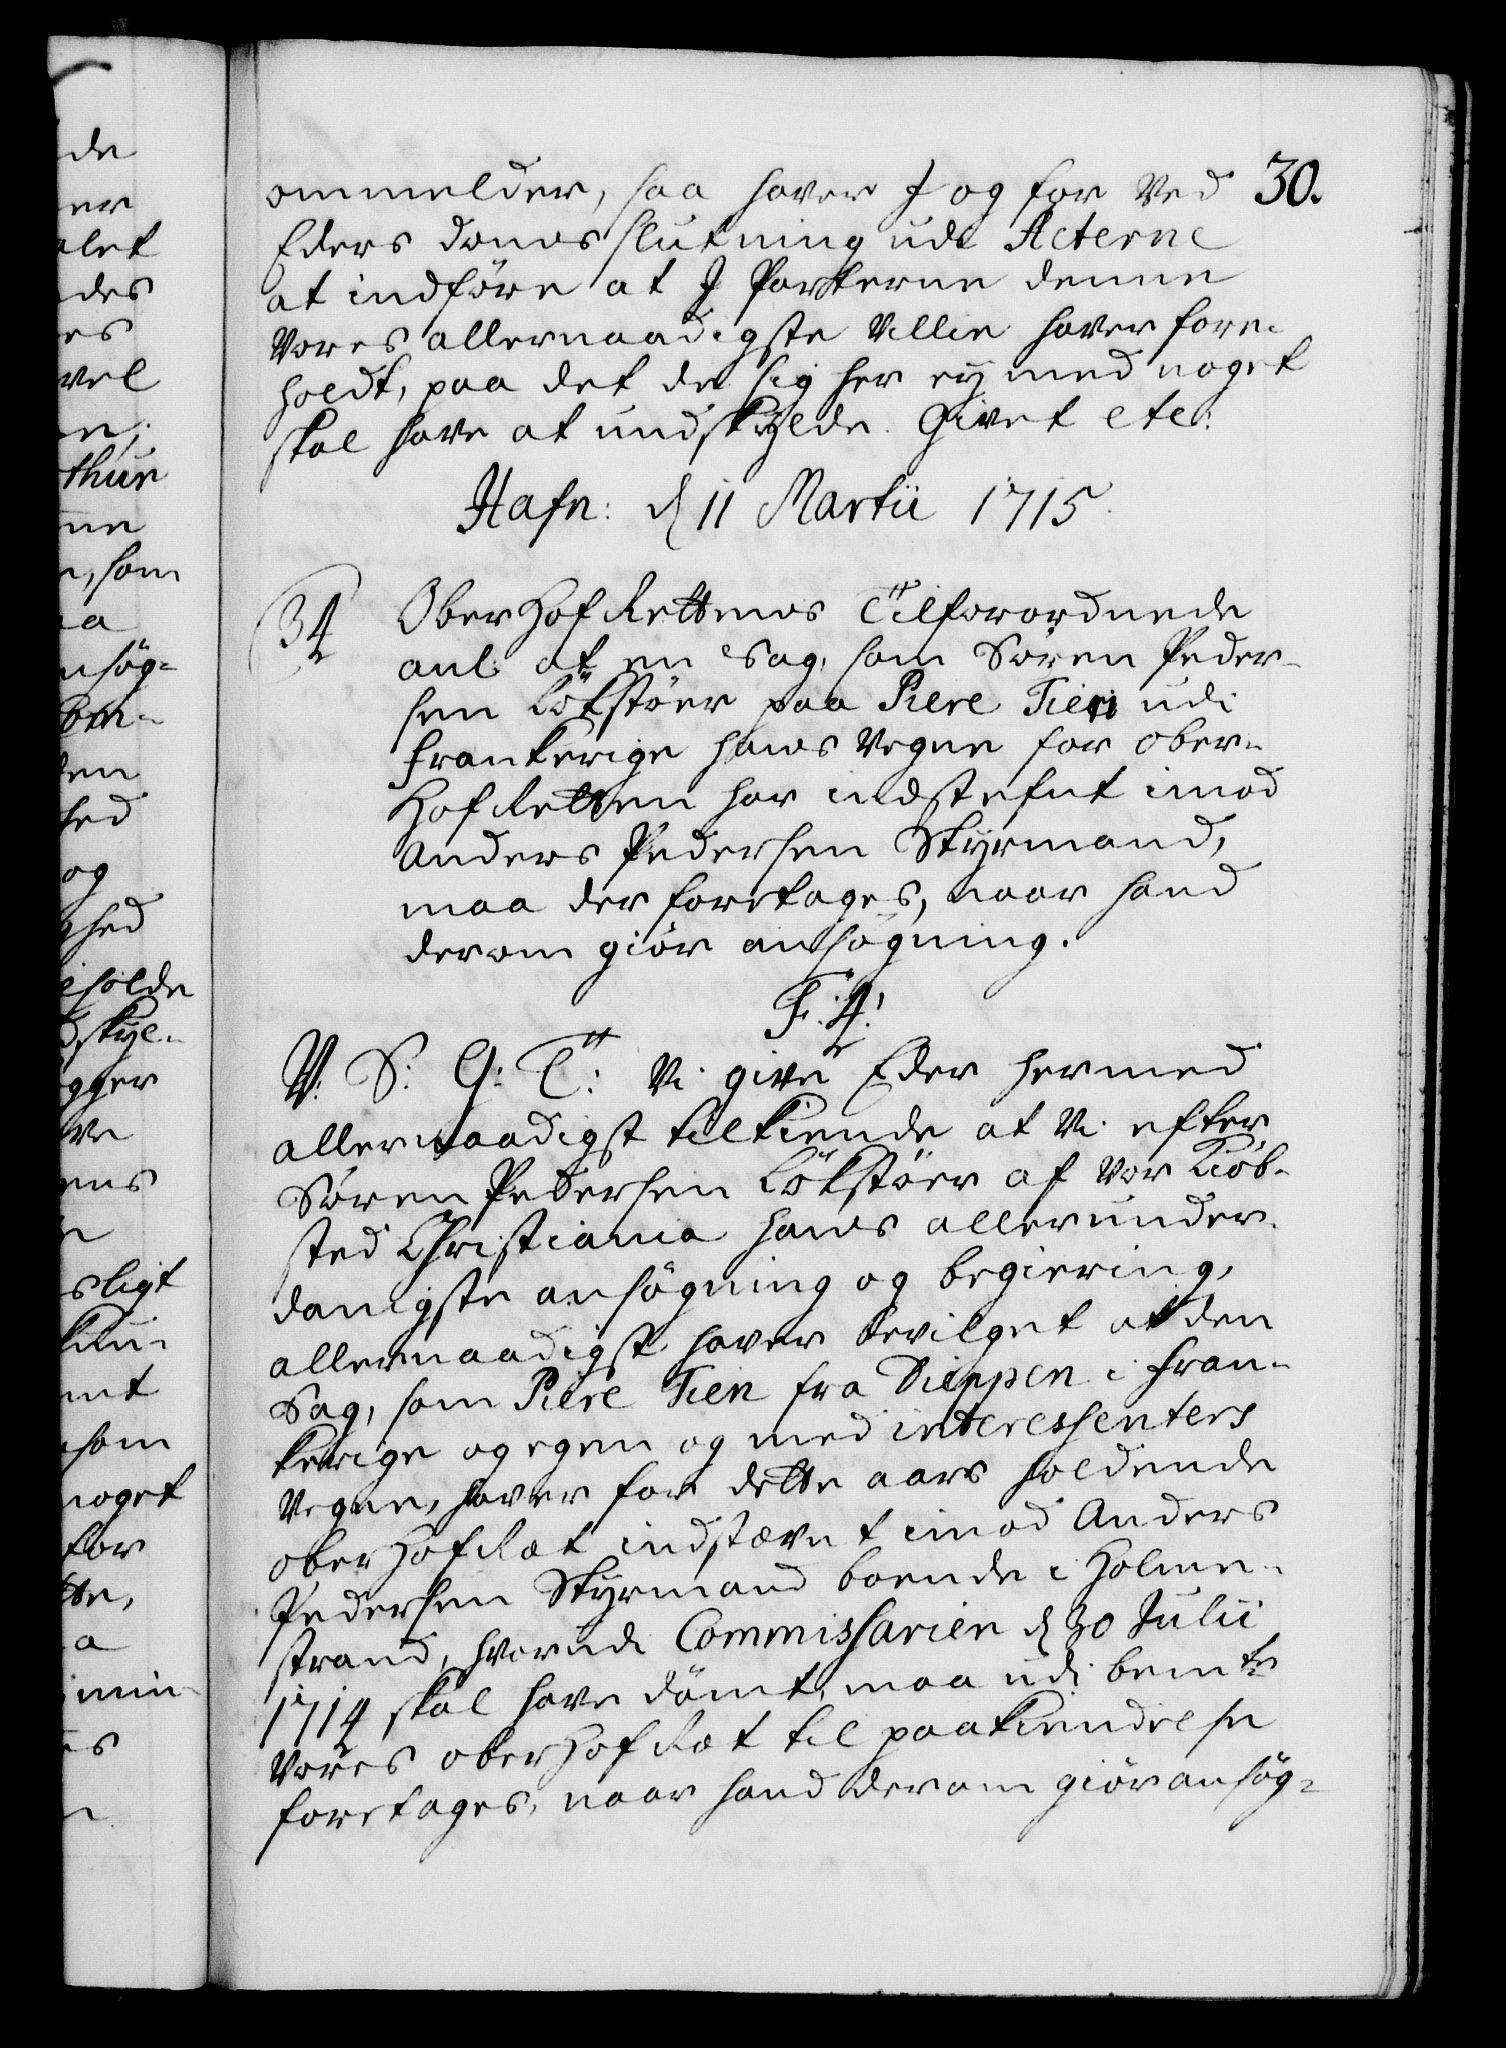 de
er
let
des
es
vel
en.
thur
ne
n, som
a
nsög-
en
hed
og
ghed
holde
dskyl-
gger
ve
ens
n
sligt
kun-
mt
som
noget
for
tte,
a
min-
es
n
30.
ommelder, saa haver I og for Ved
Eders doms slutning udi Acterne
at indföre at I Parterne denne
Vores allernaadigste Villie haver fore-
holdt, paa det de sig her ey med noget
skal have at undskylde. Givet etc:
Hafn: d 11 Martii 1715.
34
Ober Hof Rettens Tilforordnede
anl: at en Sag, som Sören Peder-
sen Lökstöer paa Piere Tien udi
Frankerige hans Vegne for ober-
Hof Retten har indstefnt imod
Anders Pedersen Styrmand,
maa der foretages, naar hand
derom giör ansögning.
F: 4!
V: S: G: T: Vi give Eder hermed
allernaadigst tilkiende at Vi efter
Sören Pedersen Lökstöer af Vor Kiöb-
sted Christiania hans allerunder-
danigste ansögning og begiering,
allernaadigst haver bevilget at den
Sag, som Piere Tien fra Dieppen i Fran-
kerige og egen og med interessenters
Vegne, haver for dette aars holdende
ober Hof Ræt indstævnt imod Anders
Pedersen Styrmand boende i Holme-
strand, hvorudi Commissarier d 30 Julii
1714 skal have dömt, maa udi bemte
Vores ober Hof Ræt til paakiendelse
foretages, naar hand derom giör ansög-